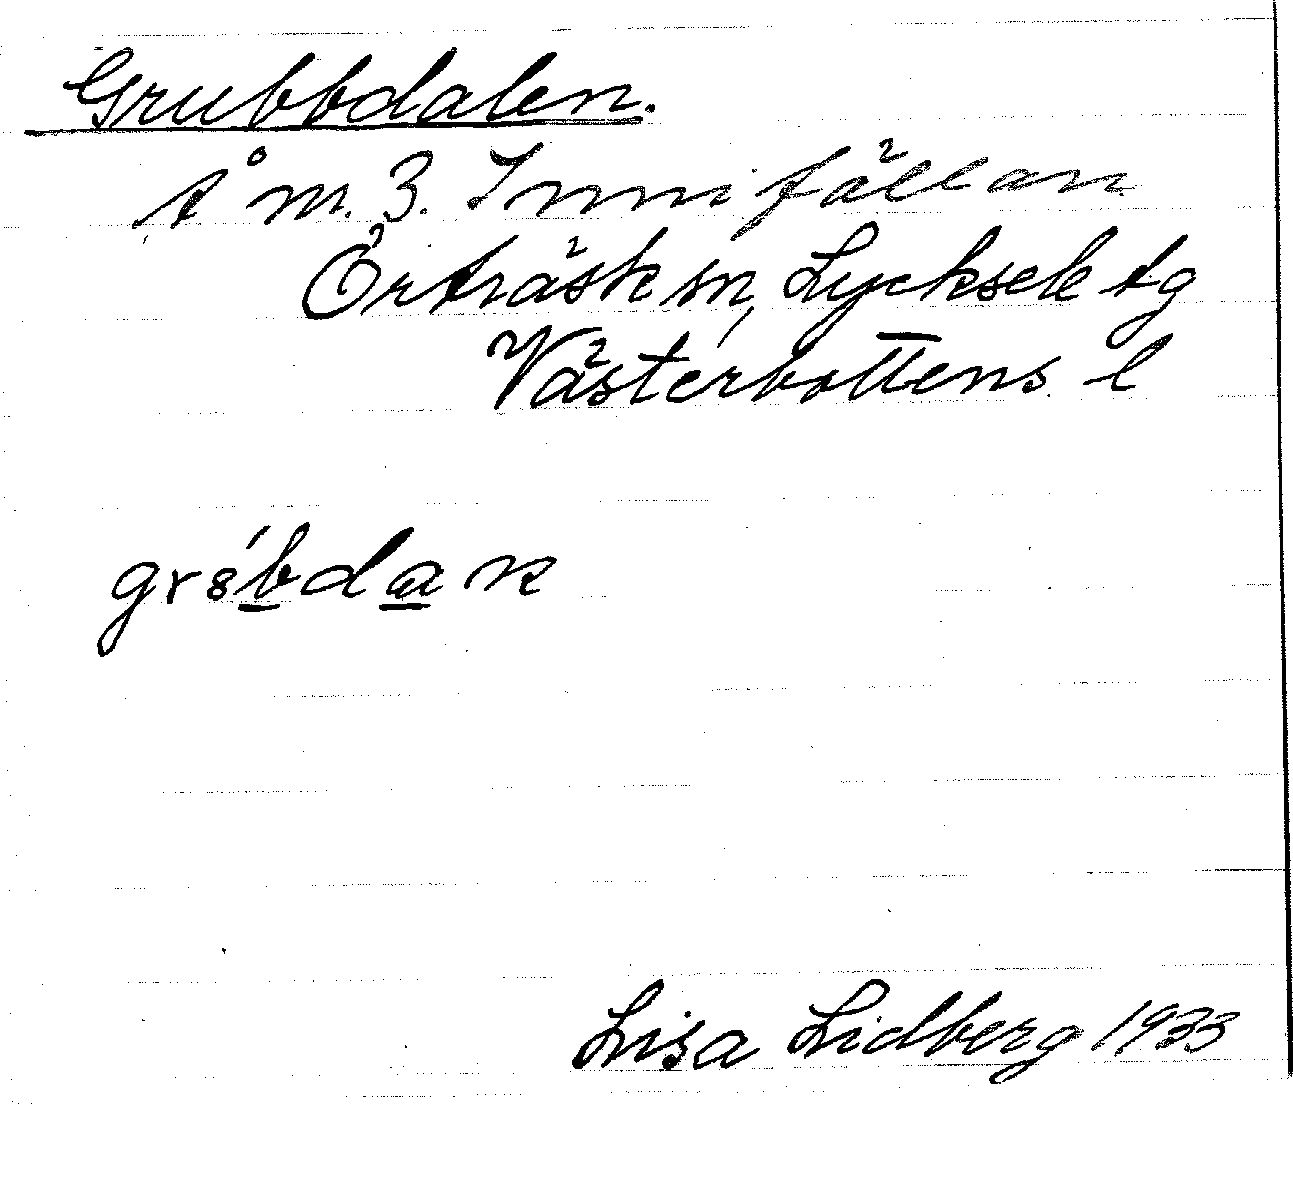 Grubbdalen.
å m. 3. Innifällan
Örträsk sn, Lycksele tg
Västerbottens l
gr8́bdan
Lisa Lidberg 1933